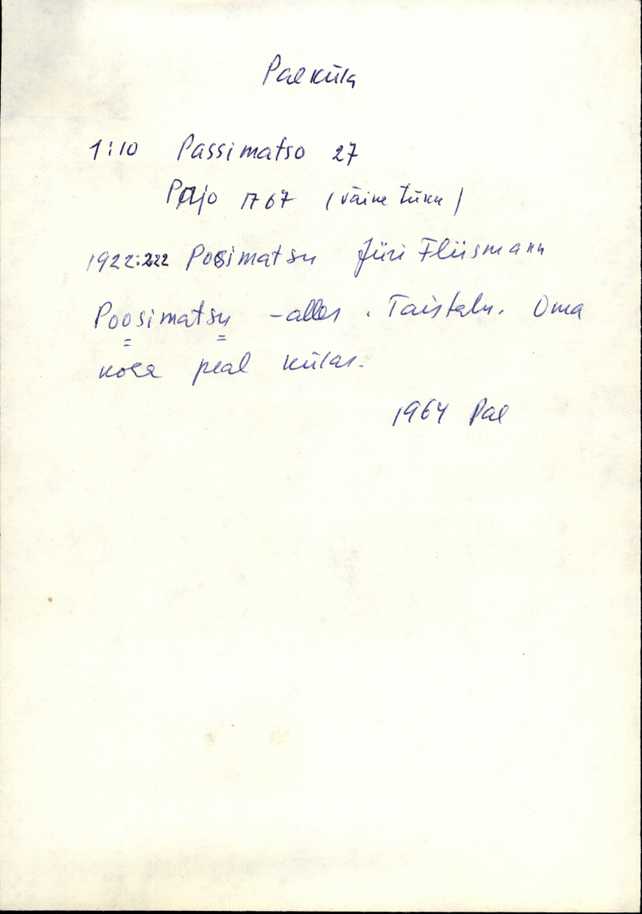 Palküla
1:10 Passimatso 27
Pajo 1767 (väike tükk)
1922:222 Poosimatsu Jüri Fliismann
Poosimatsu - alles. Taistalu. Oma
koha peal külas.
1964 Pal